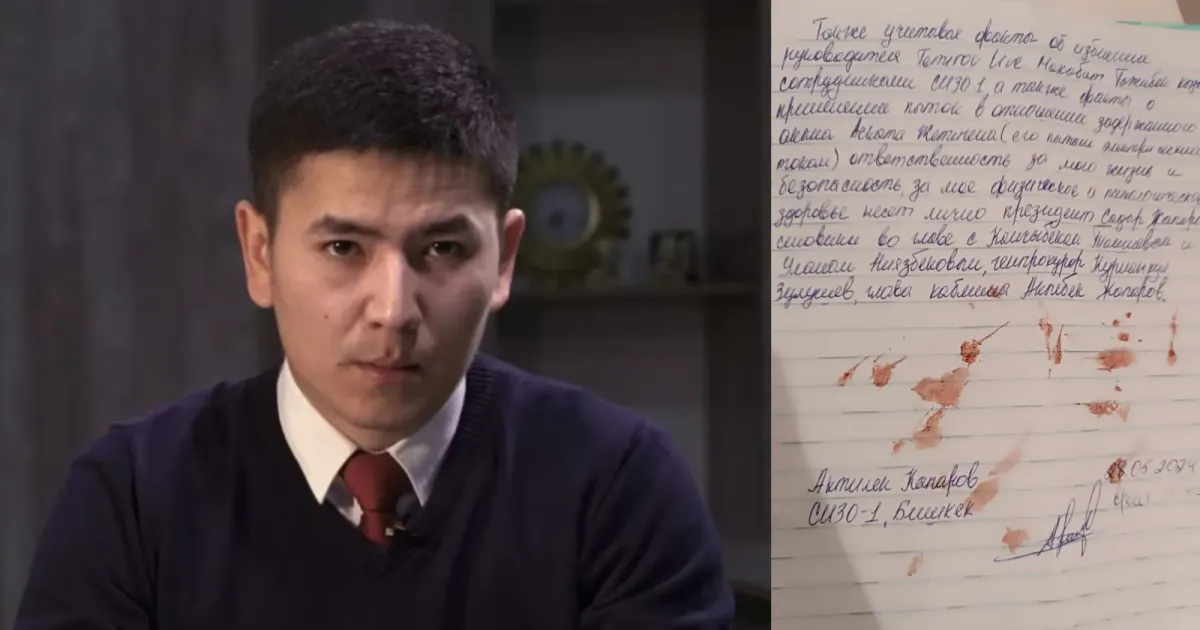 Также учитывая факты об избиении
руководителя Temirov Live Махабат Тажибек кызы
сотрудниками СИЗО-1, а также факты о
применении пыток в отношении задержанного
акына Аската Жетигена (его пытали электрическим
током) ответственность за мою жизнь и
безопасность, за мое физическое и психологическое
здоровье несет лично президент Садыр Жапаров
силовики во главе с Камчыбеком Ташиевым и
Уланом Ниязбековым, генпрокурор Курманкул
Зулушев, глава кабмина Акылбек Жапаров.
Актилек Капаров
СИЗО-1, Бишкек
28.05.2024